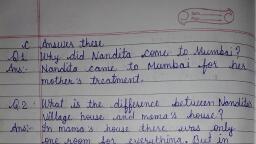 C Answer these
Q1 Why did Nandita come to Mumbai?
Ans:- Nandita came to Mumbai for her
mother's treatment.
Q2 What is the difference between Nandita's
village house and mama's house?
Ans:- In mama's house there was only
one room for everything. But in